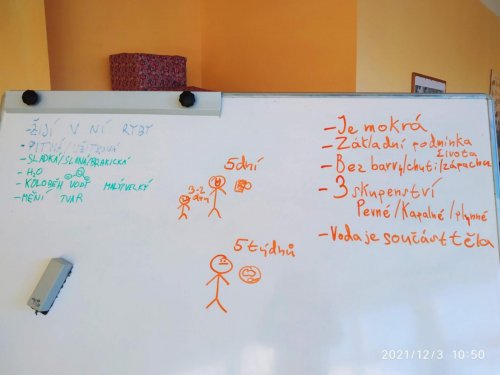 -ŽIJÍ V NÍ RYBY
-PITNÁ/UŽITKOVÁ
-SLADKÁ/SLANÁ/BRAKICKÁ
-H₂O
-KOLOBĚH VODY MALÝ/VELKÝ
-MĚNÍ TVAR
5 dní
3-2 dny
5 týdnů
-Je mokrá
-Základní podmínka života
-Bez barvy/chuti/zápachu
-3 skupenství
Pevné/Kapalné/plynné
-Voda je součást těla
2021/12/3 10:50